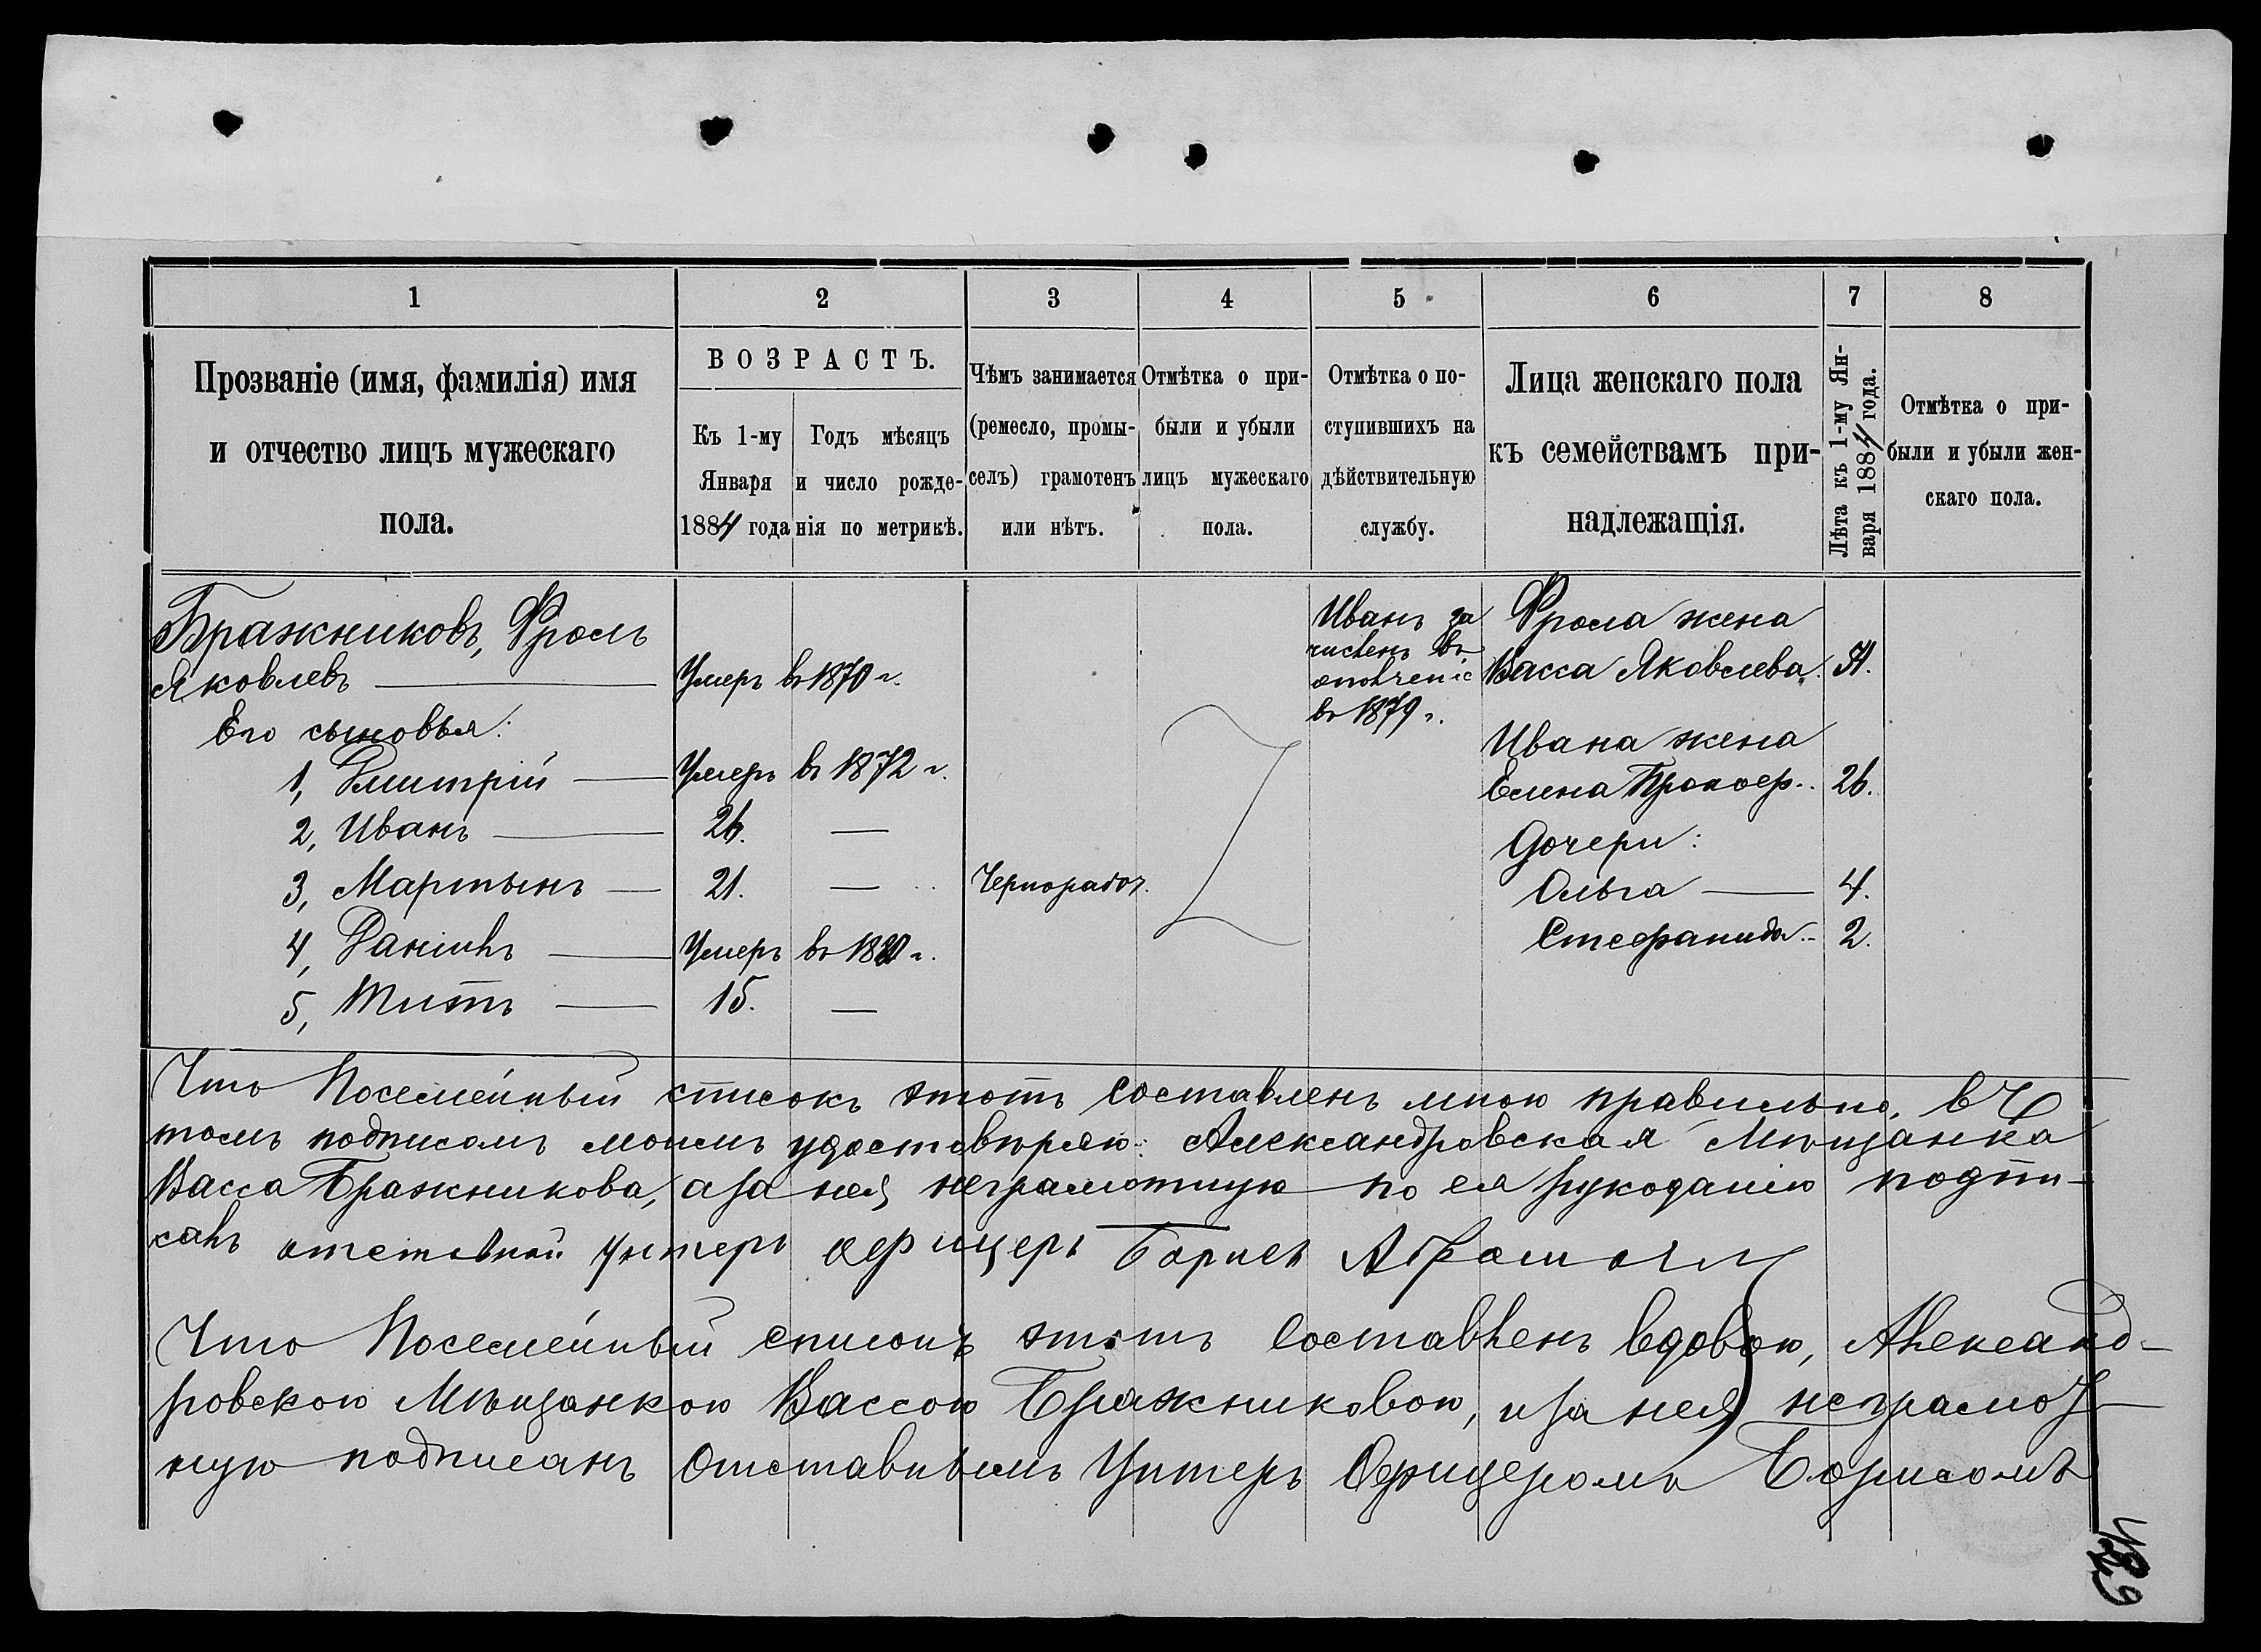 1 2 3 4 5 6 7 8
Прозваніе (имя, фамилія) имя
и отчество лицъ мужескаго
пола.
ВОЗРАСТЪ.
Къ 1-му
Января
1884 года
Годъ мѣсяцъ
и число рожде-
нія по метрикѣ.
Чѣмъ занимается
(ремесло, промы-
селъ) грамотенъ
или нѣтъ.
Отмѣтка о при-
были и убыли
лицъ мужескаго
пола.
Отмѣтка о по-
ступившихъ на
дѣйствительную
службу.
Лица женскаго пола
къ семействамъ при-
надлежащія.
Лѣта къ 1-му Ян-
варя 1884 года.
Отмѣтка о при-
были и убыли жен-
скаго пола.
Бражниковъ, Фролъ
Яковлевъ — Умеръ въ 1870 г.
Его сыновья:
1, Дмитрій — Умеръ въ 1872 г.
2, Иванъ — 26. —
3, Мартынъ — 21. — Чернорабоч.
4, Даніилъ — Умеръ въ г.
5, Титъ — 15. —
Иванъ за
численъ въ
ополченіе
въ 1879 г.
Фрола жена
Васса Яковлева.
Ивана жена
Елена Прокоф.. 26.
Дочери:
Ольга — 4.
Стефанида.. 2.
Что Посемейный списокъ этотъ составленъ мною правильно, въ
томъ подписомъ моимъ удостовѣряю: Александровская Мѣщанка
Васса Бражникова, а за нея, неграмотную по ея рукоданію подпи-
салъ отставной Унтеръ офицеръ Борисъ
Что Посемейный списокъ этотъ составленъ вдовою, Александ-
ровскою Мѣщанкою Вассою Бражниковою, и за нея неграмот-
ную подписанъ Отставнымъ Унтеръ Офицеромъ Борисомъ